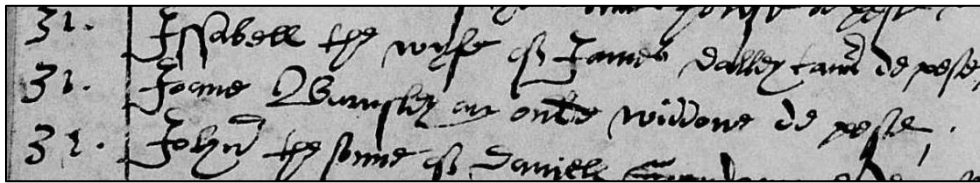 31. Issabell the wyfe of James dalley tann de peste
31. Joane an oulde widdowe de peste.
31. John the sonne of daniell